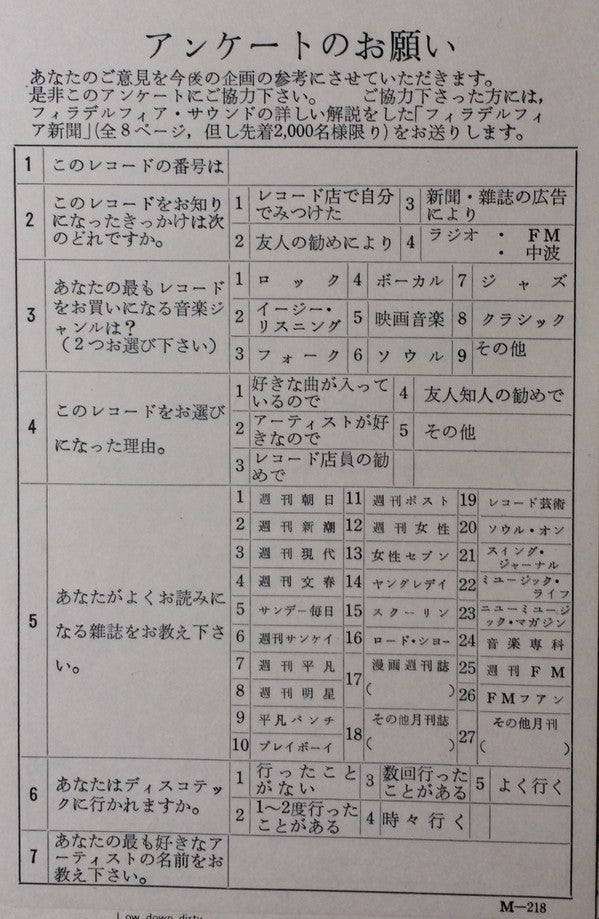 アンケートのお願い
あなたのご意見を今後の企画の参考にさせていただきます。
是非このアンケートにご協力下さい。　　ご協力下さった方には,
フィラデルフィア・サウンドの詳しい解説をした「フィラデルフィ
ア新聞」(全8ページ, 但し先着2,000名様限り)をお送りします。
1 このレコードの番号は
2 このレコードをお知り
になったきっかけは次
のどれですか。
1 レコード店で自分
でみつけた
3 新聞・雑誌の広告
により
2 友人の勧めにより
4 ラジオ ・ FM
・ 中波
3 あなたの最もレコード
をお買いになる音楽ジ
ャンルは?
(2つお選び下さい)
1 ロック 4 ボーカル 7 ジャズ
2 イージー・
リスニング
5 映画音楽 8 クラシック
3 フォーク 6 ソウル 9 その他
4 このレコードをお選び
になった理由。
1 好きな曲が入って
いるので
4 友人知人の勧めで
2 アーティストが好
きなので
5 その他
3 レコード店員の勧
めで
5 あなたがよくお読みに
なる雑誌をお教え下さ
い。
1 週刊朝日 11 週刊ポスト 19 レコード芸術
2 週刊新潮 12 週刊女性 20 ソウル・オン
3 週刊現代 13 女性セブン 21 スイング・
ジャーナル
4 週刊文春 14 ヤングレディ 22 ミュージック・
ライフ
5 サンデー毎日 15 スクーリン 23 ニューミュージ
ック・マガジン
6 週刊サンケイ 16 ロード・ショー 24 音楽専科
7 週刊平凡 17 漫画週刊誌
( )
25 週刊FM
8 週刊明星 26 FMフアン
9 平凡パンチ 18 その他月刊誌
( )
27 その他月刊
( )
10 プレイボーイ
6 あなたはディスコテッ
クに行かれますか。
1 行ったこと
がない
3 数回行った
ことがある
5 よく行く
2 1~2度行った
ことがある
4 時々行く
7 あなたの最も好きなア
ーティストの名前をお
教え下さい。
M—218
Low down dirty